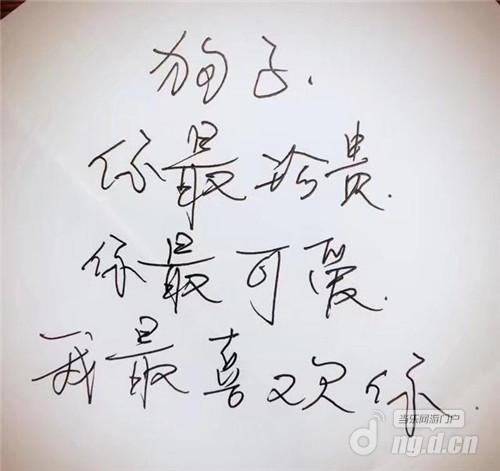 狗子.
你最珍贵.
你最可爱.
我最喜欢你.
当乐网游门户
d.ng.d.cn